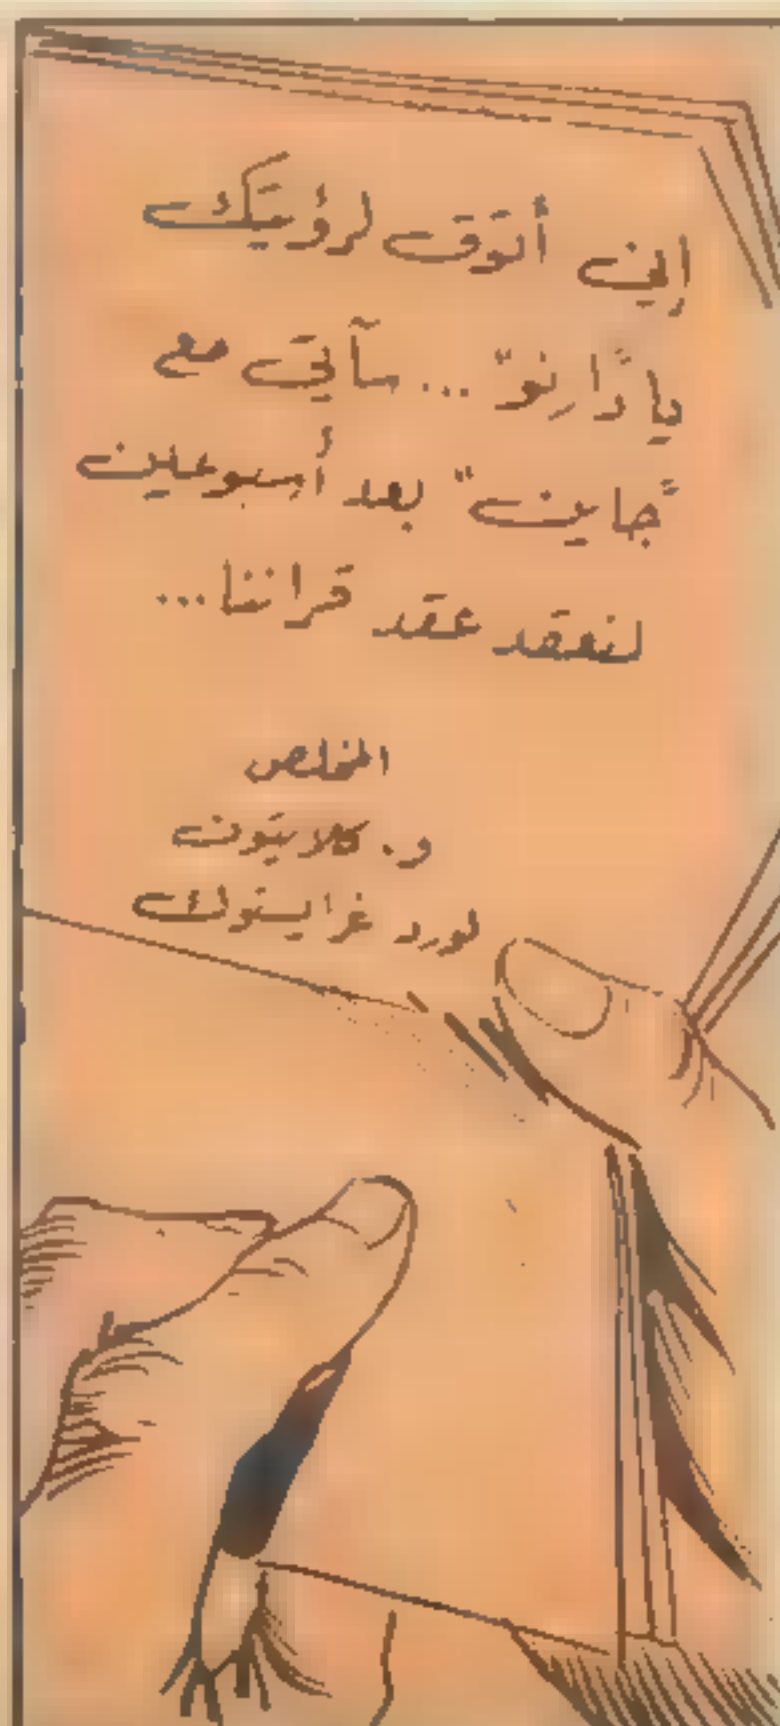 إني أتوق لرؤيتك
يا "دارنو" ... سآتي مع
"جاين" بعد أسبوعين
لنعقد عقد قراننا ...
المخلص
و. كلايتون
لورد غرايستوك